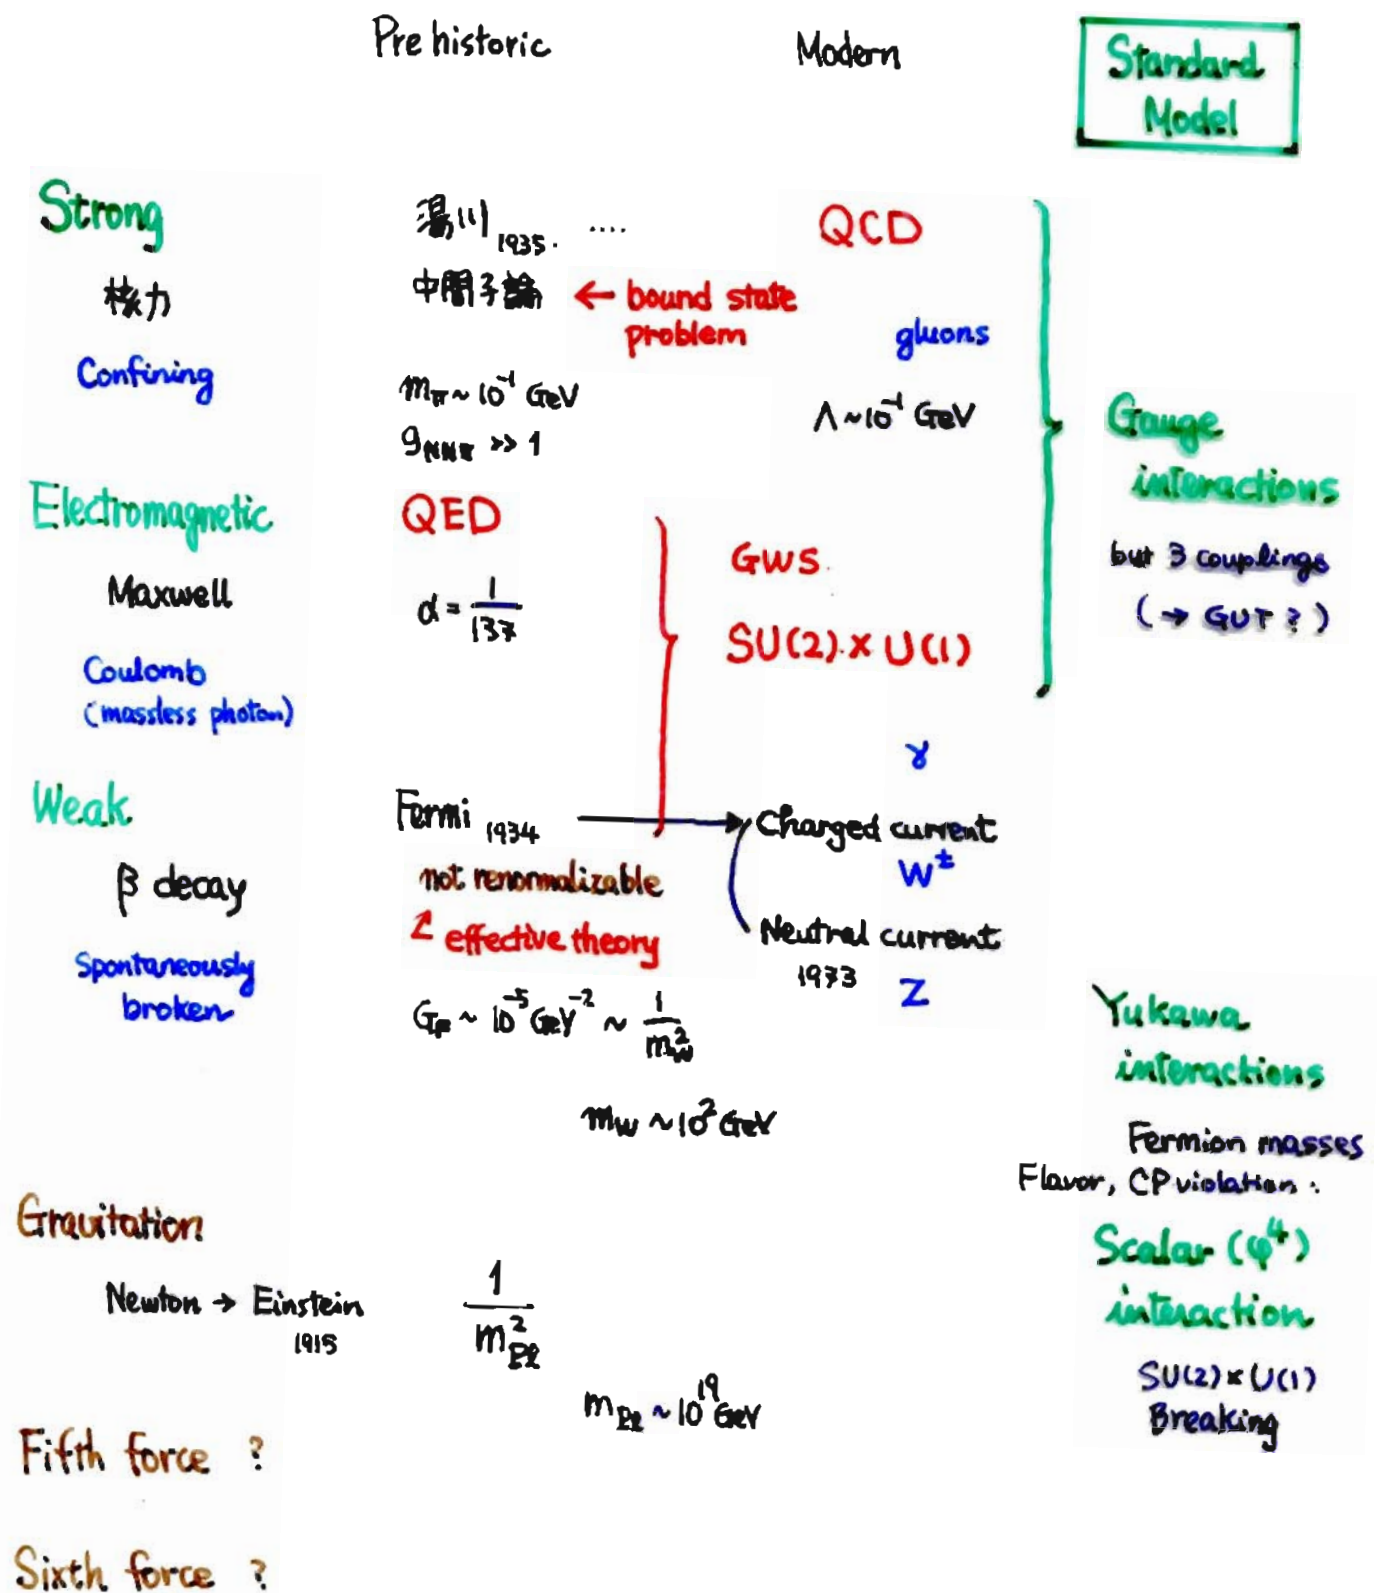 Pre historic
Modern
Standard
Model
Strong
核力
Confining
湯川 1935. ....
中間子論
← bound state
problem
m_π ~ 10⁻¹ GeV
g_NNπ >> 1
QCD
gluons
Λ ~ 10⁻¹ GeV
Gauge
interactions
but 3 couplings
(→ GUT ?)
Electromagnetic
Maxwell
Coulomb
(massless photon)
QED
α = 1/137
GWS.
SU(2) × U(1)
γ
Weak
β decay
Spontaneously
broken
Fermi 1934
not renormalizable
effective theory
G_F ~ 10⁻⁵ GeV⁻² ~ 1/m_W²
m_W ~ 10² GeV
Charged current
W±
Neutral current
1973
Z
Yukawa
interactions
Fermion masses
Flavor, CP violation :
Scalar (φ⁴)
interaction
SU(2) × U(1)
Breaking
Gravitation
Newton → Einstein
1915
1/m_Pl²
m_Pl ~ 10¹⁹ GeV
Fifth force ?
Sixth force ?